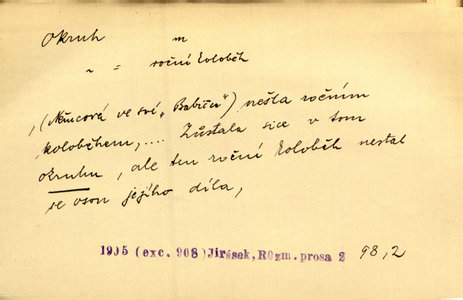 Okruh m
~ = roční koloběh
„(Němcová ve své „Babičce“) nešla ročním
koloběhem,.... Zůstala sice v tom
okruhu, ale ten roční koloběh nestal
se osou jejího díla,
1905 (exc. 908) Jirásek, Rŭzm. prosa 2 98,2